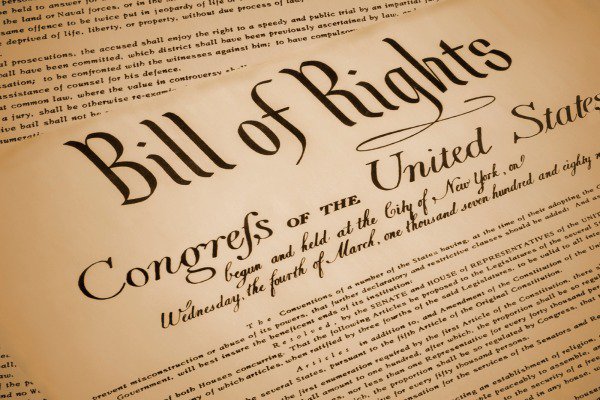 be held to answer for
the land or Naval forces, or in the
same offence to be twice put in jeopardy of life or
deprived of life, liberty, or property, without due process of law
prosecutions, the accused shall enjoy the right to a speedy and public trial by an impartial
shall have been committed, which district shall have been previously ascertained by law, and
to be confronted with the witnesses against him; to have compulsory
assistance of counsel for his defence.
common law, where the value in controversy shall
a jury, shall be otherwise re-exam
bail shall not be
Bill of Rights
Congreſs OF THE United States
begun and held at the City of New York, on
Wednesday, the fourth of March, one thousand seven hundred and eighty
The Conventions of a number of the States having, at the time of their adopting the
prevent misconstruction or abuse of its powers, that further declaratory and restrictive clauses should be added: And as
Government, will best insure the beneficent ends of its institution:
Resolved, by the SENATE and HOUSE of REPRESENTATIVES of the
of both Houses concurring, That the following Articles be proposed to the Legislatures of the several
of which articles, when ratified by three fourths of the said Legislatures, to be valid to all
Articles in addition to, and Amendment of the Constitution of the
States, pursuant to the fifth Article of the Original Constitution.
the first enumeration required by the first Article of the Constitution, there
shall amount to one hundred, after which, the proportion shall be so
less than one Representative for every forty thousand
which the proportion shall be so regulated by Congress, that
for every fifty thousand persons.
for the services of the Senators and
an establishment of religion,
peaceably to assemble,
security of a free